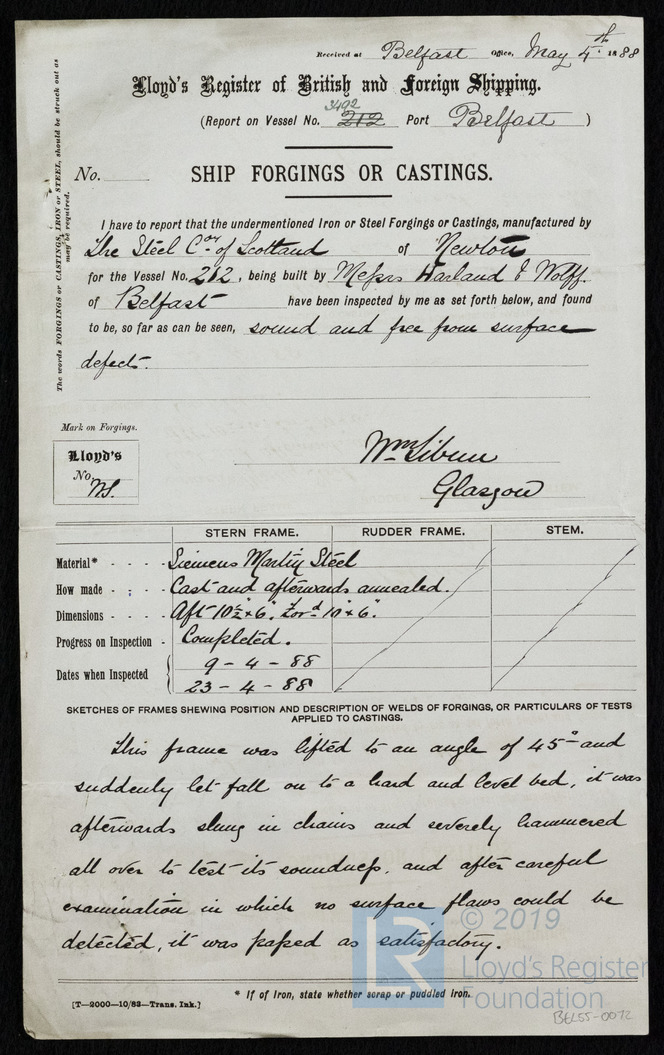 Received at Belfast Office, May 4th 1888
Lloyd's Register of British and Foreign Shipping.
3492
(Report on Vessel No. 212 Port Belfast )
No.
SHIP FORGINGS OR CASTINGS.
The words FORGINGS or CASTINGS, IRON or STEEL, should be struck out as
may be required.
I have to report that the undermentioned Iron or Steel Forgings or Castings, manufactured by
The Steel Coy of Scotland of Newton
for the Vessel No. 212, being built by Messrs Harland & Wolff.
of Belfast have been inspected by me as set forth below, and found
to be, so far as can be seen, sound and free from surface
defects.
Mark on Forgings.
Lloyd's
No.
WS.
Wm
Glasgow
STERN FRAME. RUDDER FRAME. STEM.
Material* - - - - Siemens Martin Steel
How made - - - - Cast and afterwards annealed.
Dimensions - - - - Aft 10½" × 6". Ford 10" × 6".
Progress on Inspection - Completed.
Dates when Inspected
9 - 4 - 88
23 - 4 - 88
SKETCHES OF FRAMES SHEWING POSITION AND DESCRIPTION OF WELDS OF FORGINGS, OR PARTICULARS OF TESTS
APPLIED TO CASTINGS.
This frame was lifted to an angle of 45° and
suddenly let fall on to a hard and level bed, it was
afterwards slung in chains and severely hammered
all over to test its soundness, and after careful
examination in which no surface flaws could be
detected, it was passed as satisfactory.
© 2019
Lloyd's Register
Foundation
* If of Iron, state whether scrap or puddled iron.
[T—2000—10/82—Trans. Ink.]
BEL55-0072